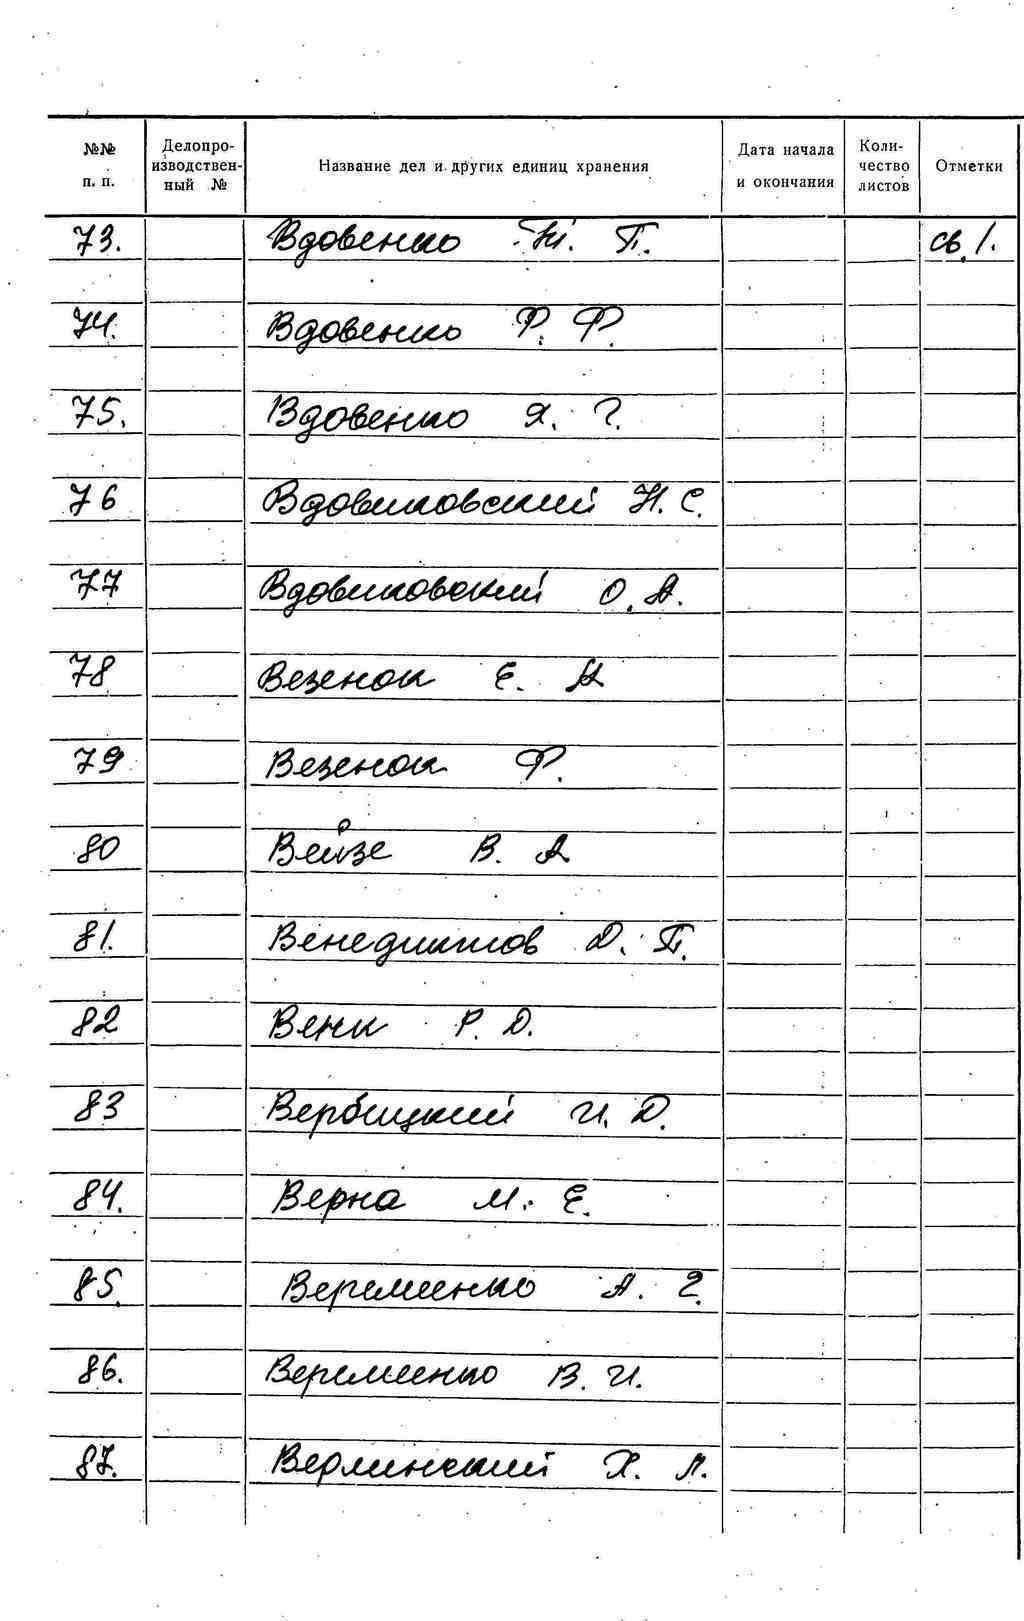 №№ п. п. Делопроизводственный № Название дел и других единиц хранения Дата начала и окончания Количество листов Отметки
73. Вдовенко Н. П. св. 1.
74. Вдовенко Р. Ф.
75. Вдовенко Я. Г.
76 Вдовиковский Н. С.
77 Вдовиковский О. А.
78 Везенок Е. А
79 Везенок Ф.
80 Вейзе В. А
81. Венедиктов Д. П.
82 Венк Р. Д.
83 Вербицкий И. Д.
84. Верна М. Е.
85. Веремеенко А. Г.
86. Веремеенко В. И.
87. Верлинский Х. Л.